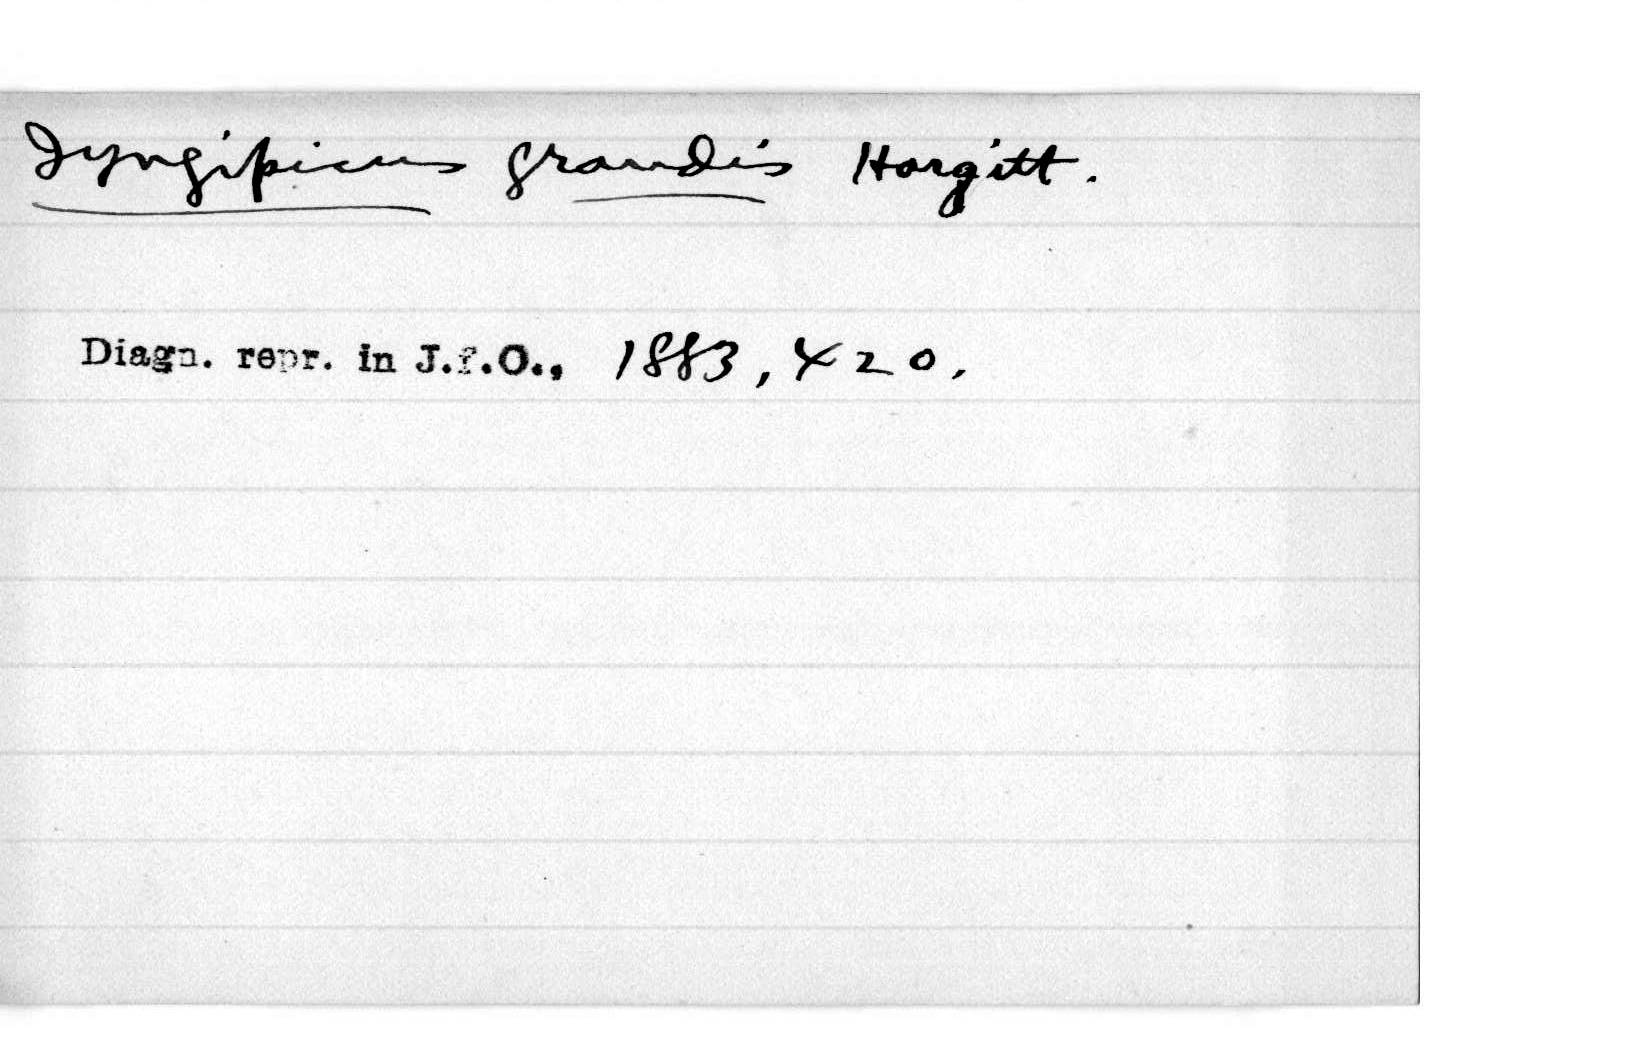 Iyngipicus grandis Hargitt.
Diagn. repr. in J.f.O., 1883, 420.